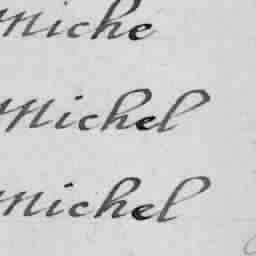 Miche
Michel
Michel